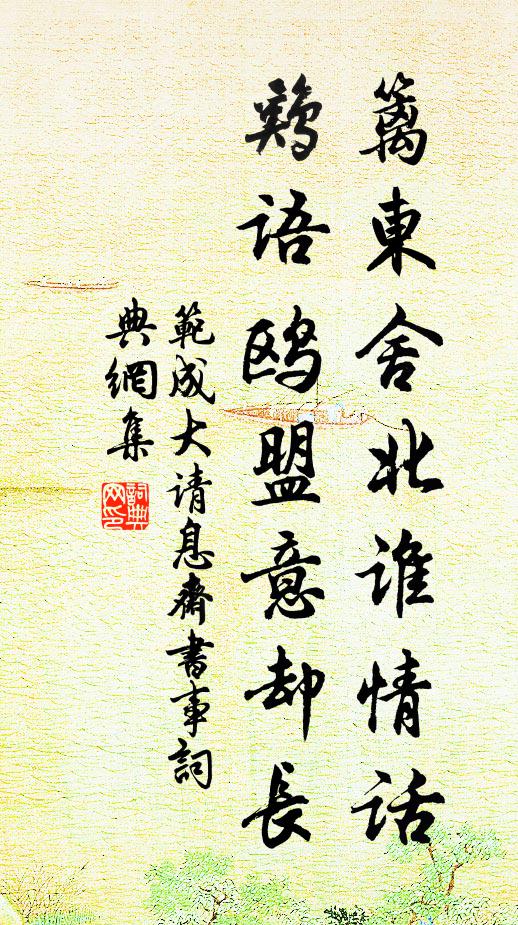 籬東舍北誰情話
鷄語鷗盟意却長
範成大请息齋書事詞
典網集
詞典
网印